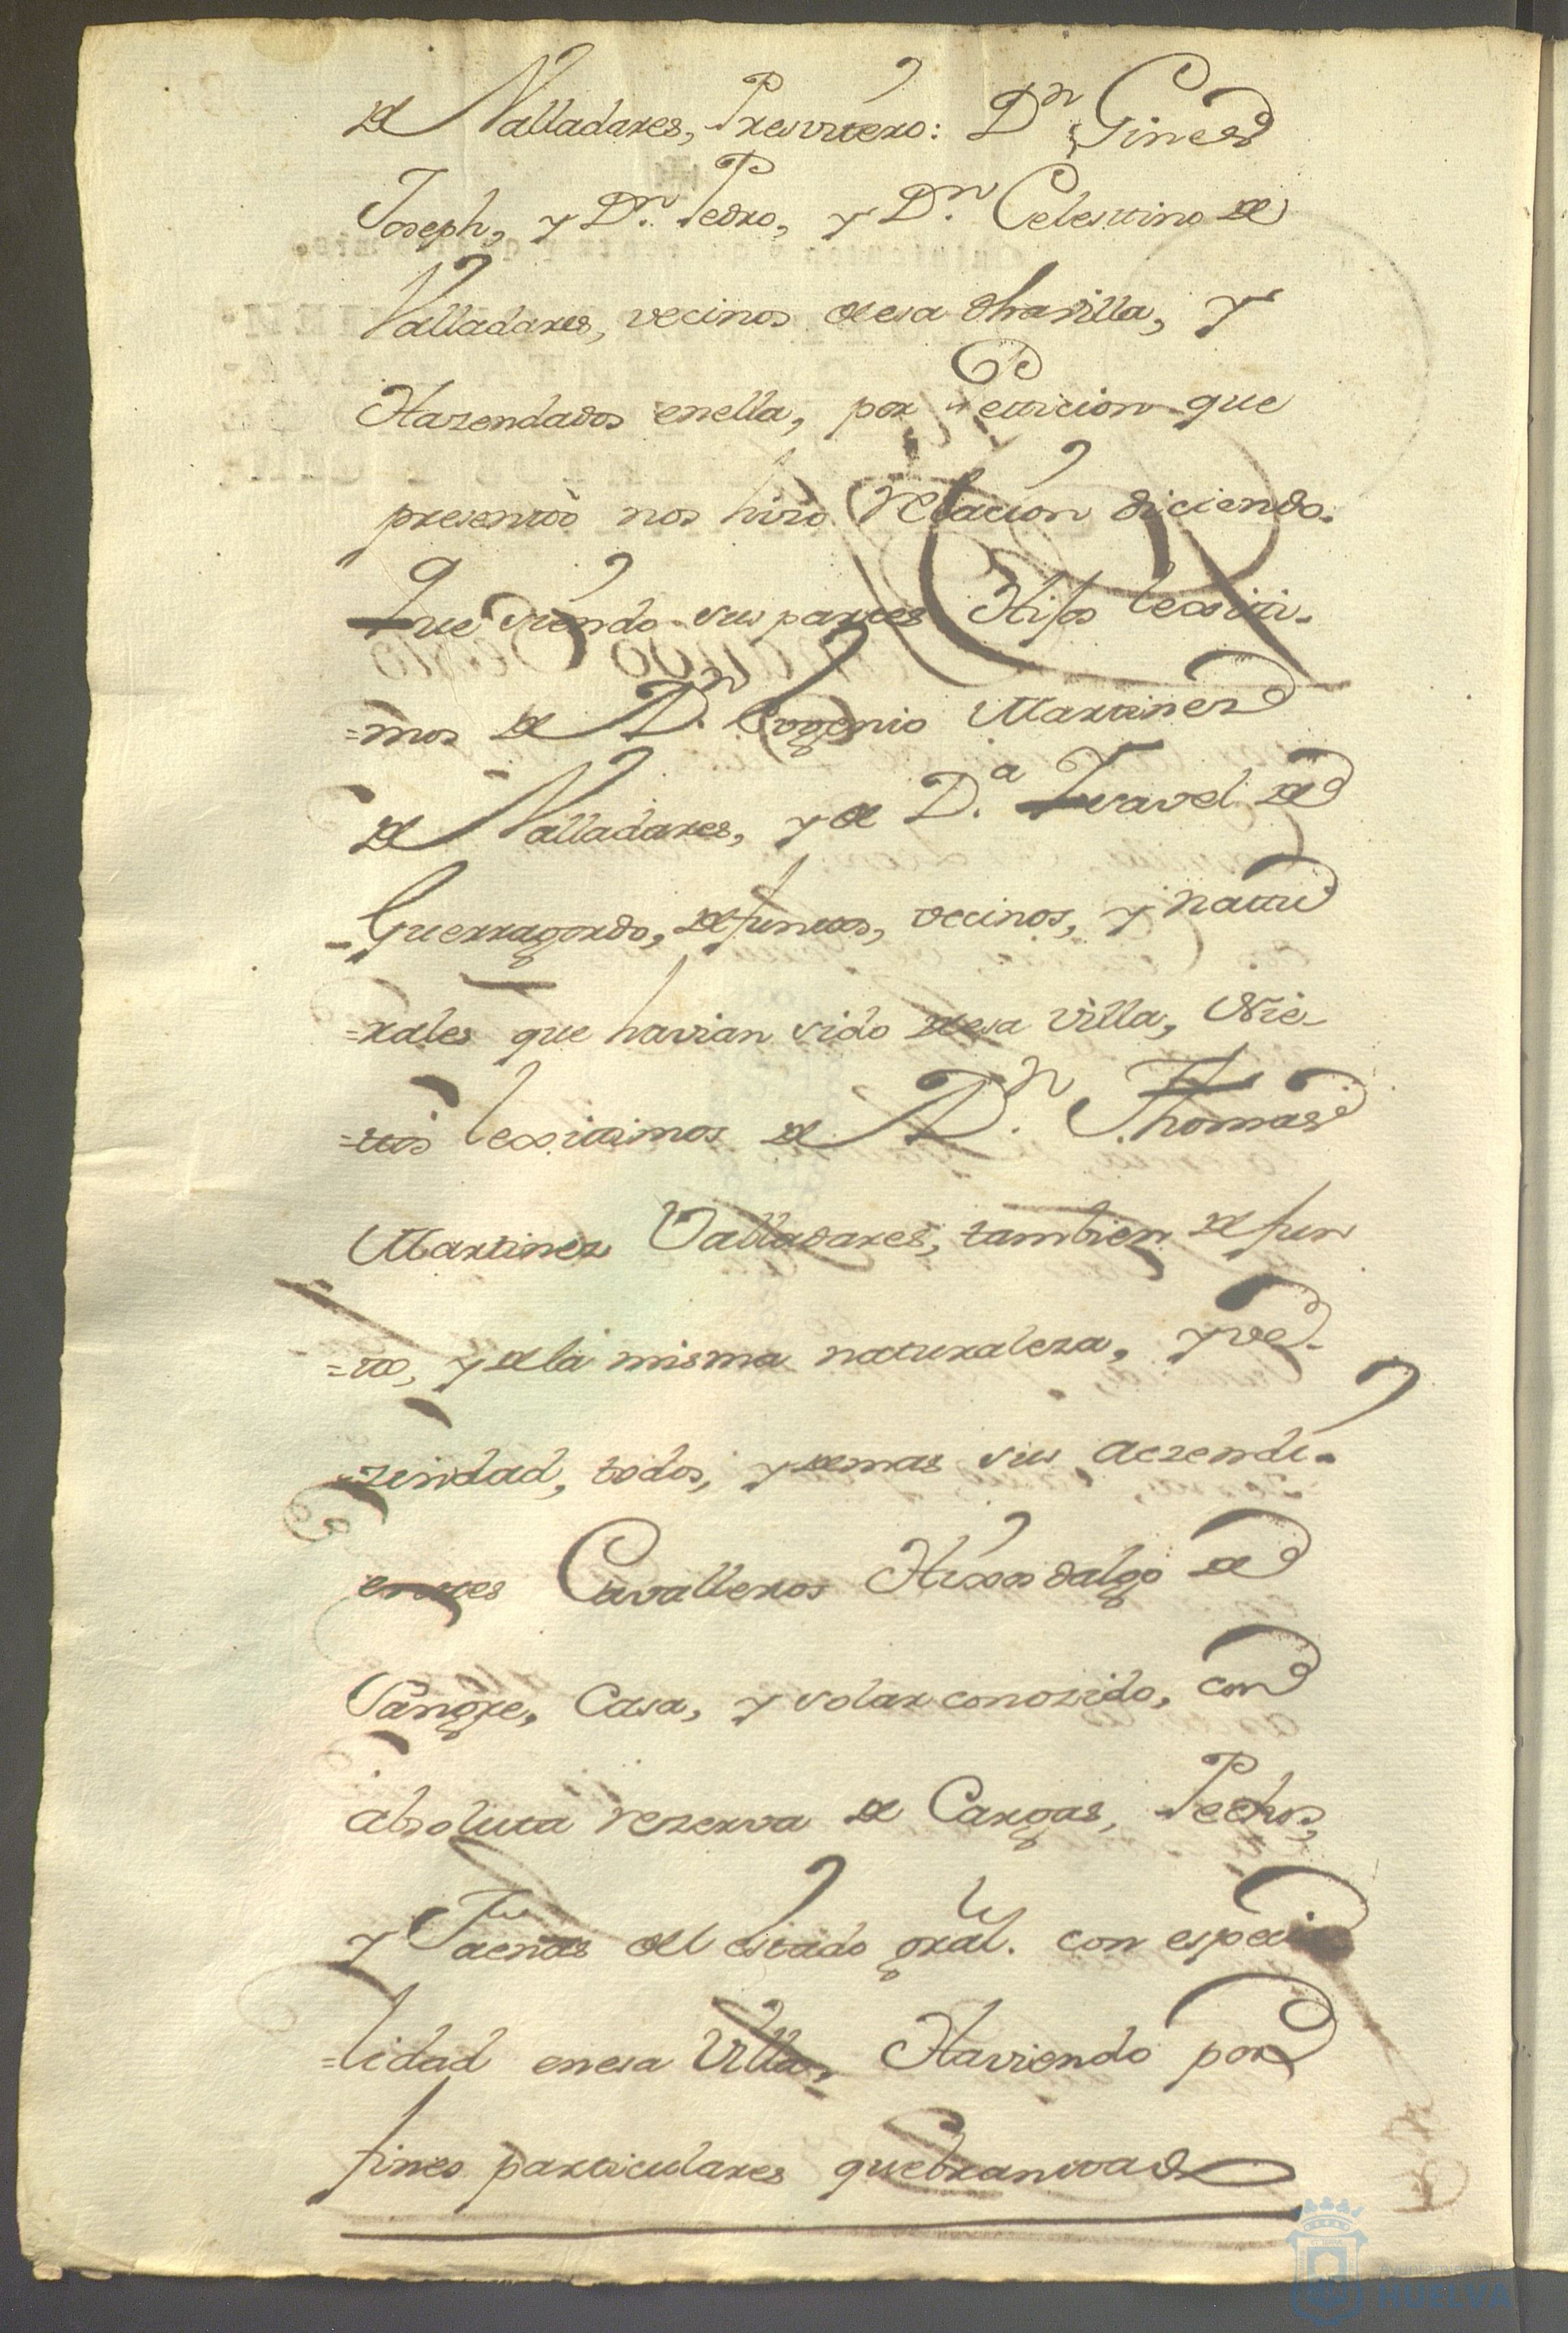 de Valladares, Presvitero: Dn. Gines
Joseph, y Dn. Pedro, y Dn. Celestino de
Valladares, vecinos de esa dha villa, y
Hazendados enella, por Petticion que
presentò nos hizo relacion diciendo.
Que siendo sus partes Hijos lexiti-
=mos de Dn. Eugenio Martinez
de Valladares, y de D.a Isavel de
Guerragordo, defuntos, vecinos, y natu
=rales que havian sido de esa Villa, Nie-
=tos lexitimos de Dn. Thomas
Martinez Valladares, tambien defun
=to, y de la misma naturaleza, y ve-
=zindad, todos, y demas sus aczendi-
entes Cavalleros Hixosdalgo de
Sangre, Casa, y solar conozido, con
absoluta rezerva de Cargas, Pechos,
y Faenas del estado gral. con especia
=lidad enesa Villa, Haviendo por
fines particulares quebrantado
Ayuntamiento de
HUELVA